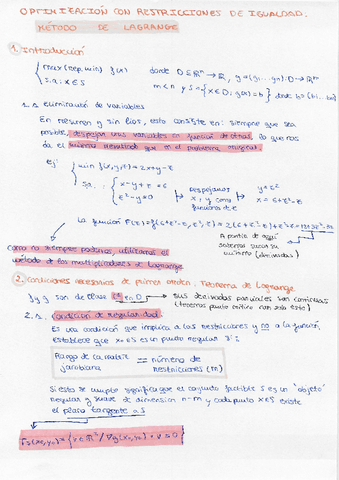 OPTIMIZACIÓN CON RESTRICCIONES DE IGUALDAD.
MÉTODO DE LAGRANGE
1. Introducción
max (resp. min) f(x) donde D ⊆ ℝⁿ → ℝ, g = (g₁ ... gₘ): D → ℝᵐ
s.a: x ∈ S m < n y S = {x ∈ D; g(x) = b} donde b = (b₁ ... bₘ)
1.1 eliminación de variables
En resumen y sin líos, esto consiste en: siempre que sea
posible, despejar unas variables en función de otras, lo que nos
da el mismo resultado que en el problema original.
ej: min f(x,y,z) = 2x + y - z
s.a. x - y + z = 6 Despejamos y = z²
z² - y = 0 x, y como x = 6 + z² - z
funciones de z
La función F(z) = f(6+z²-z, z², z) = 2(6+z²-z) + z² - z = 12 + 3z² - 3z
A partir de aquí
sabemos sacar su
mínimo (derivadas)
como no siempre podemos, utilizamos el
método de los multiplicadores de Lagrange
2. Condiciones necesarias de primer orden. Teorema de Lagrange.
f y g son de clase C¹ en D → sus derivadas parciales son continuas
(tenemos punto crítico con solo esto)
2.1. Condición de regularidad
Es una condición que implica a las restricciones y no a la función
Establece que x₀ ∈ S es un punto regular si:
Rango de la matriz jacobiana = número de restricciones (m)
Si esto se cumple significa que el conjunto factible S es un "objeto"
regular y suave de dimensión n-m y cada punto x ∈ S existe
el plano tangente a S